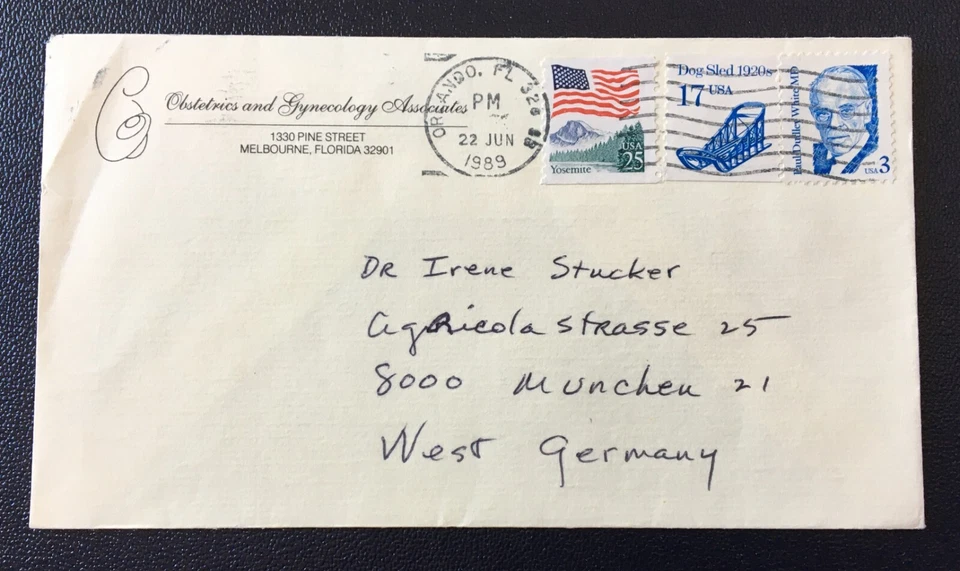 Obstetrics and Gynecology Associates
1330 PINE STREET
MELBOURNE, FLORIDA 32901
ORLANDO, FL
PM
22 JUN
1989
USA
25
Yosemite
Dog Sled 1920s
17 USA
Paul Dudley White MD
USA 3
DR Irene Stucker
Agricola Strasse 25
8000 Munchen 21
West Germany